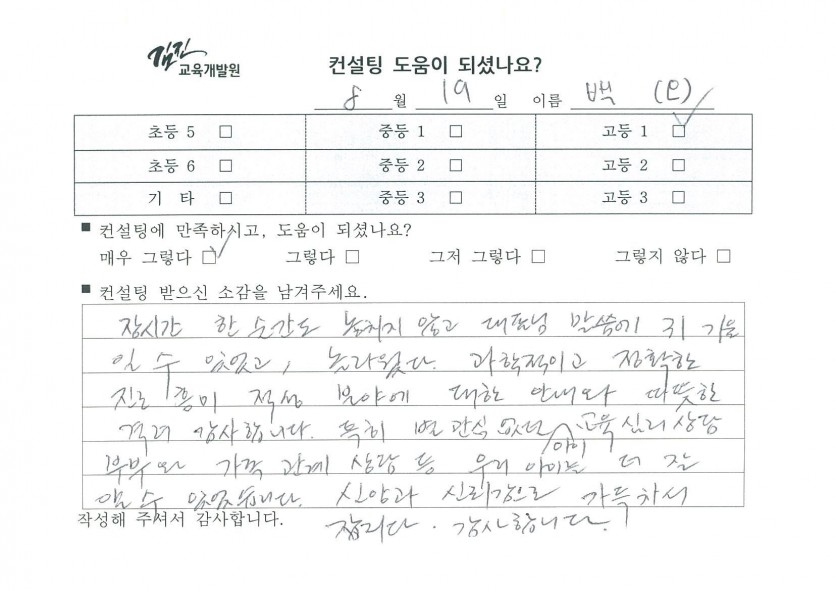 김진
교육개발원
컨설팅 도움이 되셨나요?
8 월 19 일 이름 백 (은)
초등 5 □ 중등 1 □ 고등 1 ☑
초등 6 □ 중등 2 □ 고등 2 □
기 타 □ 중등 3 □ 고등 3 □
■ 컨설팅에 만족하시고, 도움이 되셨나요?
매우 그렇다 ☑ 그렇다 □ 그저 그렇다 □ 그렇지 않다 □
■ 컨설팅 받으신 소감을 남겨주세요.
장시간 한 순간도 놓치지 않고 대표님 말씀에 귀 기울
일 수 있었고, 놀라웠다. 과학적이고 정확한
진로 흥미 적성 분야에 대한 안내와 따뜻한
격려 감사합니다. 특히 별 관심 없던 아이 교육 심리 상담
부부와 가족 관계 상담 등 우리 아이를 더 잘
알 수 있었습니다. 신뢰감으로 가득차서
갑니다. 감사합니다.
작성해 주셔서 감사합니다.